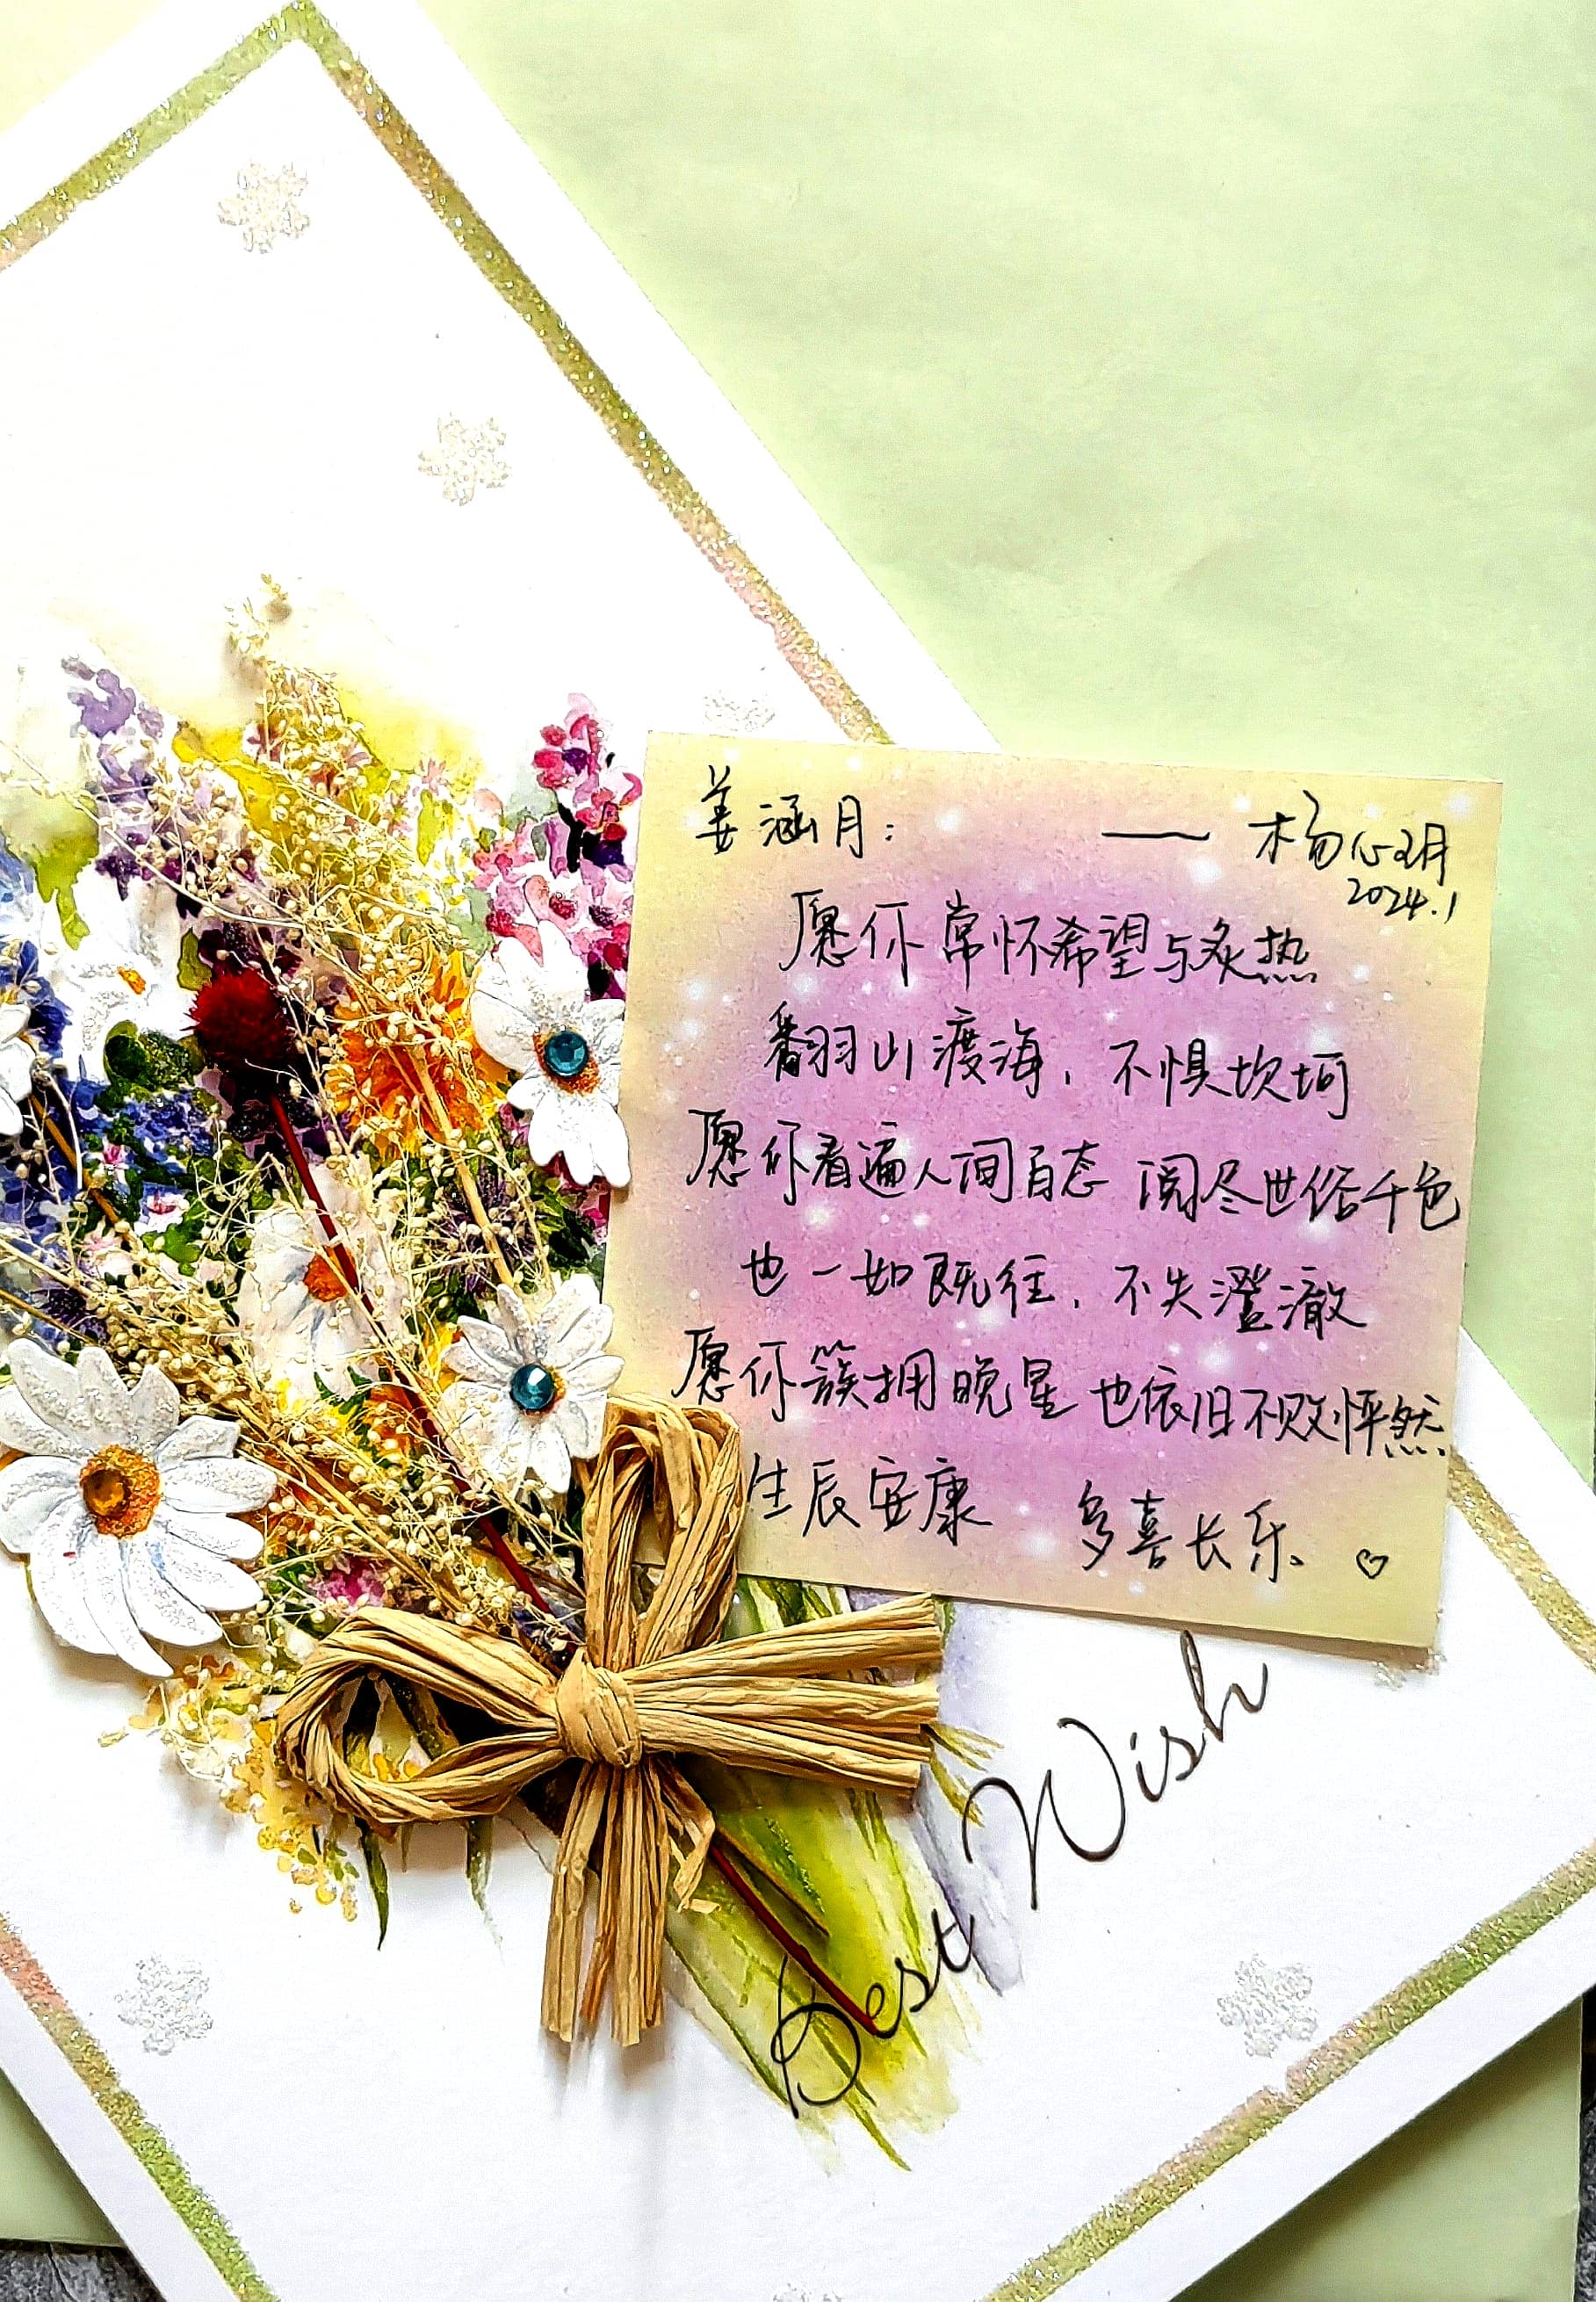 姜涵月: —— 杨心玥
2024.1
愿你常怀希望与炙热
翻山渡海，不惧坎坷
愿你看遍人间百态 阅尽世俗千色
也一如既往，不失澄澈
愿你簇拥晚星 也依旧不败怦然
生辰安康 多喜长乐、♡
Best Wish